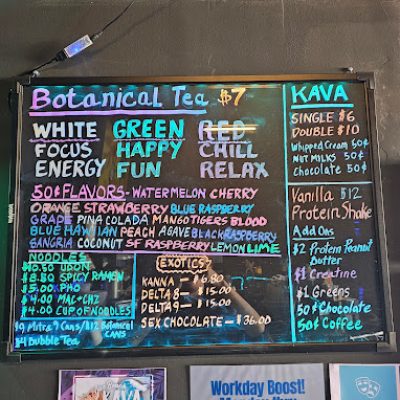 Botanical Tea $7
WHITE GREEN RED
FOCUS HAPPY CHILL
ENERGY FUN RELAX
50¢ FLAVORS - WATERMELON CHERRY
ORANGE STRAWBERRY BLUE RASPBERRY
GRAPE PINA COLADA MANGO TIGERS BLOOD
BLUE HAWIIAN PEACH AGAVE BLACK RASPBERRY
SANGRIA COCONUT SF RASPBERRY LEMON LIME
NOODLES
$10.50 UDON
$8.50 SPICY RAMEN
$5.00 PHO
$4.00 MAC + CHZ
$4.00 CUP OF NOODLES
$9 Mitra 9 Cans/$12 Botanical
CANS
$4 Bubble Tea
EXOTICS
KANNA — $6.80
DELTA 8 — $15.00
DELTA 9 — $15.00
SEX CHOCOLATE — $36.00
KAVA
SINGLE $6
DOUBLE $10
Whipped Cream 50¢
NUT MILKS 50¢
Chocolate 50¢
Vanilla $12
Protein Shake
Add Ons
$2 Protein Peanut
Butter
$1 Creatine
$1 Greens
50¢ Chocolate
50¢ Coffee
KAVA
Workday Boost!